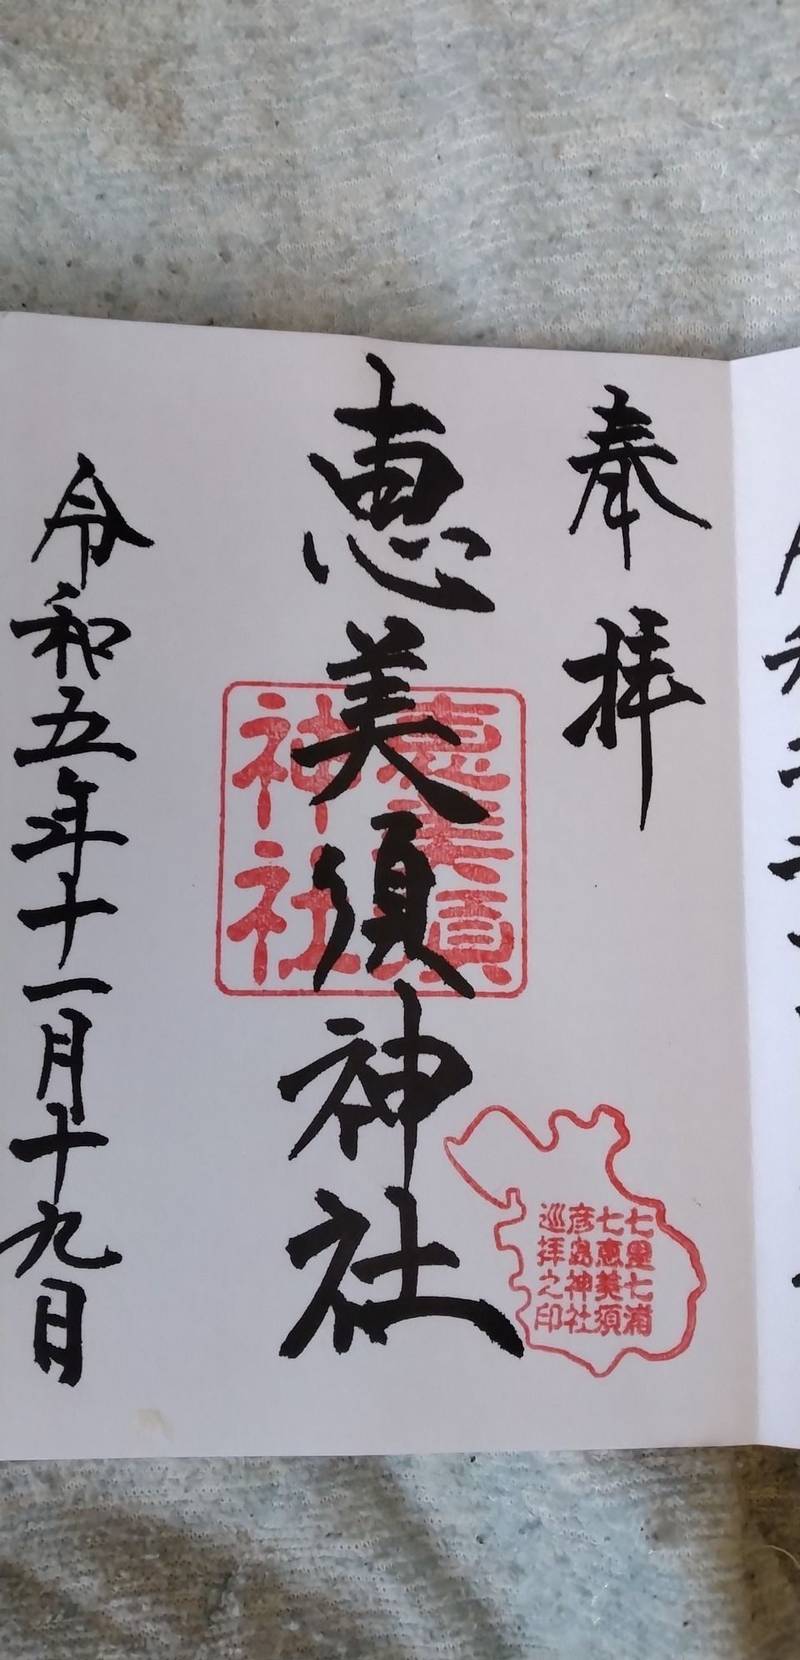 奉拝
恵美須神社
恵美須
神社
七里七浦
七恵美須
彦島神社
巡拝之印
令和五年十一月十九日